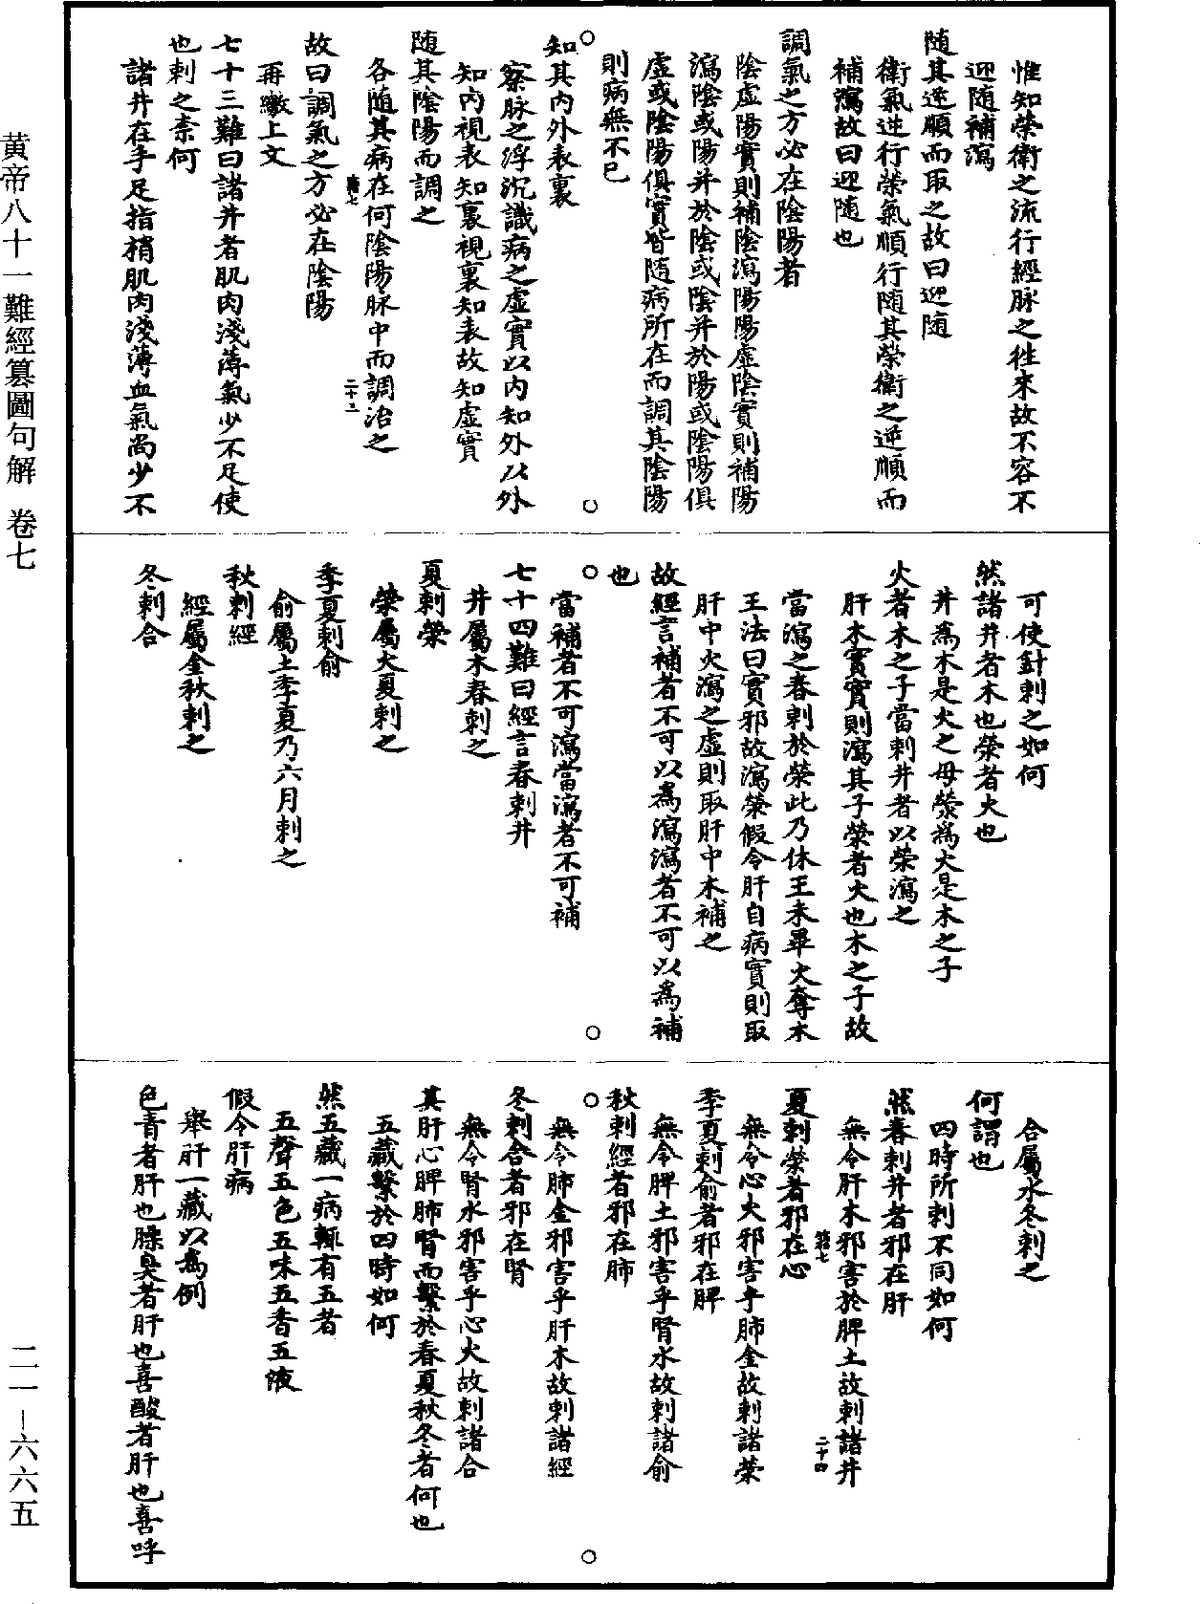 惟知榮衛之流行經脉之往來故不容不
迎随補瀉
随其逆順而取之故曰迎随
衛氣逆行榮氣順行随其榮衛之逆順而
補瀉故曰迎随也
調氣之方必在陰陽者
陰虛陽實則補陰瀉陽陽虛陰實則補陽
瀉陰或陽并於陰或陰并於陽或陰陽俱
虛或陰陽俱實皆随病所在而調其陰陽
則病無不已
知其内外表裏
察脉之浮沉識病之虛實以内知外以外
知内視表知裏視裏知表故知虛實
随其陰陽而調之
各随其病在何陰陽脉中而調治之
故曰調氣之方必在陰陽
再繳上文
七十三難曰諸井者肌肉淺薄氣少不足使
也刺之柰何
諸井在手足指梢肌肉淺薄血氣尚少不
可使針刺之如何
然諸井者木也滎者火也
井爲木是火之母滎爲火是木之子
火者木之子當刺井者以榮瀉之
肝木實實則瀉其子榮者火也木之子故
當瀉之春刺於榮此乃休王未畢火奪木
王法曰實邪故瀉榮假令肝自病實則取
肝中火瀉之虛則取肝中木補之
故經言補者不可以爲瀉瀉者不可以爲補
也
當補者不可瀉當瀉者不可補
七十四難曰經言春刺井
井屬木春刺之
夏刺榮
榮屬火夏刺之
季夏刺俞
俞屬土季夏乃六月刺之
秋刺經
經屬金秋刺之
冬刺合
合屬水冬刺之
何謂也
四時所刺不同如何
然春刺井者邪在肝
無令肝木邪害於脾土故刺諸井
夏刺榮者邪在心
無令心火邪害乎肺金故刺諸榮
季夏刺俞者邪在脾
無令脾土邪害乎腎水故刺諸俞
秋刺經者邪在肺
無令肺金邪害乎肝木故刺諸經
冬刺合者邪在腎
無令腎水邪害乎心火故刺諸合
其肝心脾肺腎而繫於春夏秋冬者何也
五藏繫於四時如何
然五藏一病輒有五者
五聲五色五味五香五液
假令肝病
舉肝一藏以爲例
色青者肝也臊臭者肝也喜酸者肝也喜呼
黄帝八十一難經纂圖句解 卷七
二一—六六五